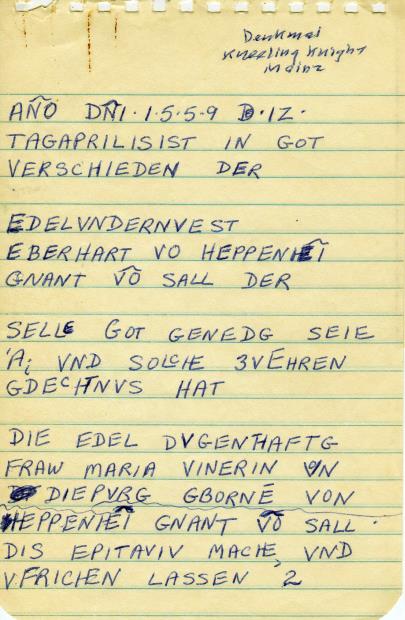 Denkmal
Kneeling Knight
Mainz
AÑO DÑI·1·5·5·9 D·12·
TAGAPRILISIST IN GOT
VERSCHIEDEN DER
EDELVNDERNVEST
EBERHART VO HEPPENHEĨT
GNANT VÕ SALL DER
SELLE GOT GENEDG SEIE
VND SOLCHE 3VEHREN
GDECHTNVS HAT
DIE EDEL DVGENTHAFTG
FRAW MARIA VINERIN VN
DIEPVRG GBORNĒ VON
HEPPENHEĨT GNANT VÕ SALL·
DIS EPITAVIV MACHE, VND
VFRICHEN LASSEN 2